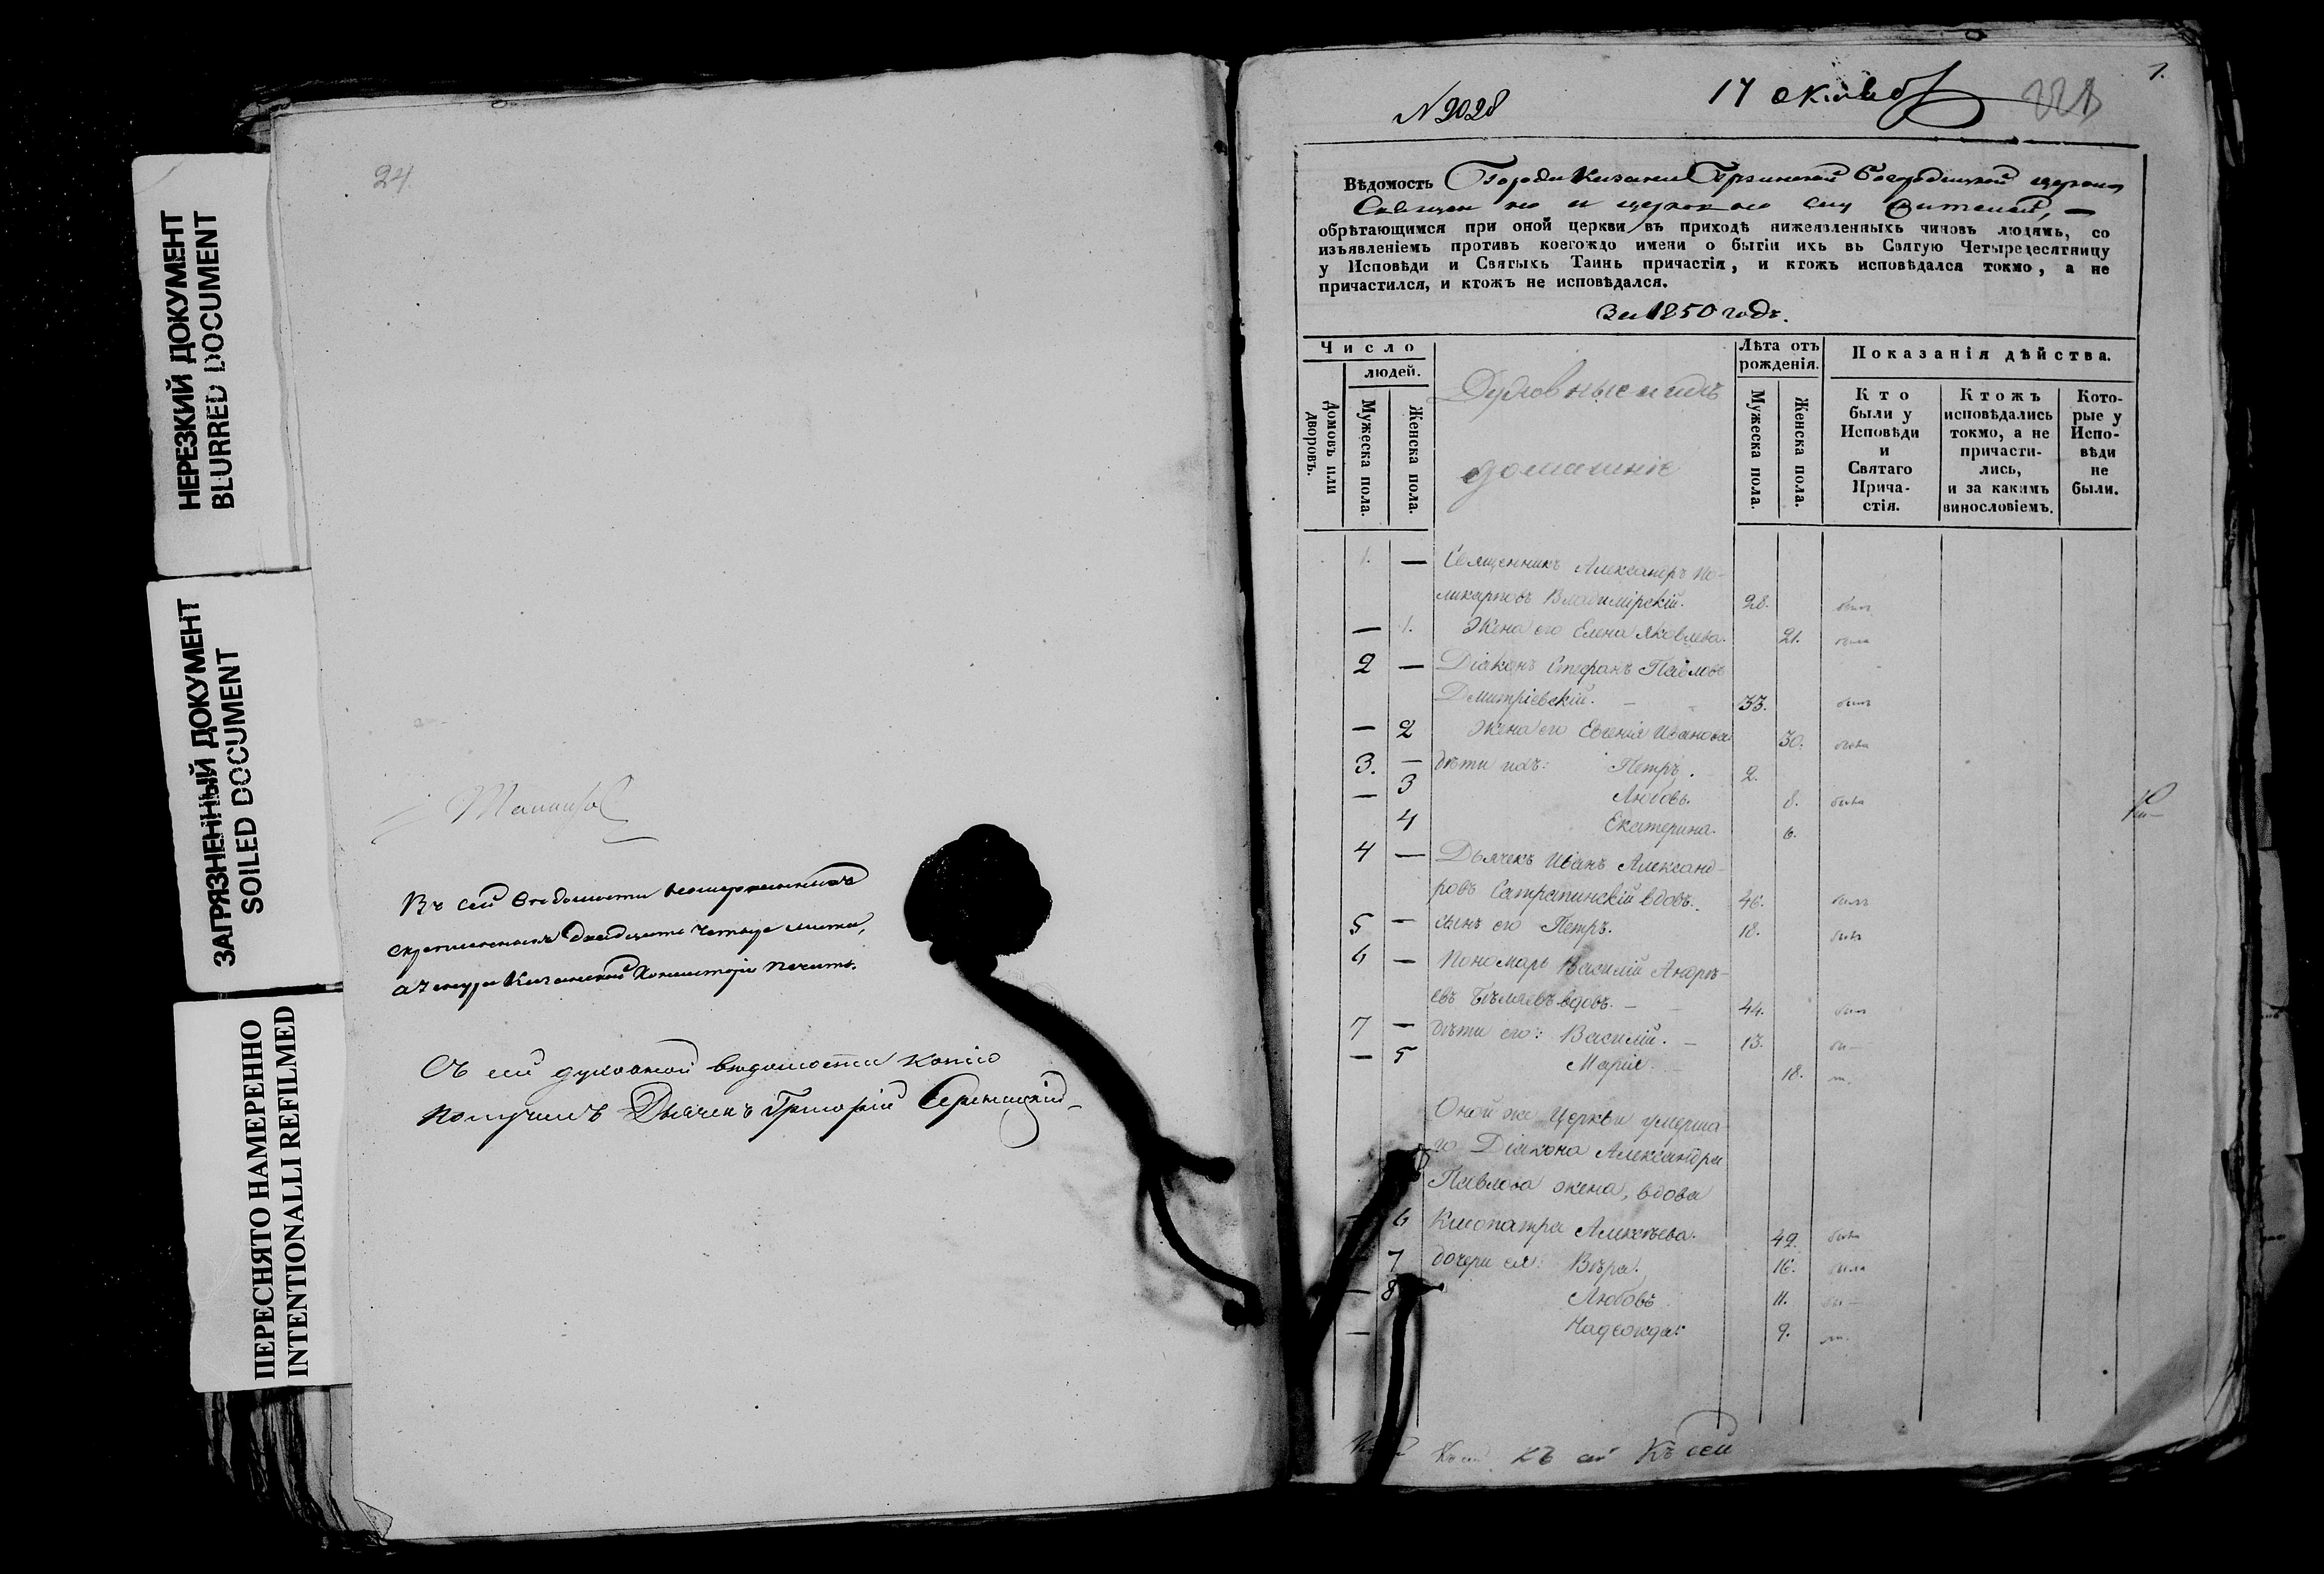 НЕРЕЗКИЙ ДОКУМЕНТ
BLURRED DOCUMENT
ЗАГРЯЗНЕННЫЙ ДОКУМЕНТ
SOILED DOCUMENT
ПЕРЕСНЯТО НАМЕРЕННО
INTENTIONALLI REFILMED
24
Въ сей вѣдомости
скрѣпленныхъ двадцать четыре листа,
Казанской Консисторіи печать.
Съ сей духовной вѣдомости копію
получилъ Дьячекъ Григорій
№ 2028
17 октяб
221
1.
Вѣдомость Города Казани Грузинской Богородицкой церкви
Священно и церковно служителей,
обрѣтающимся при оной церкви въ приходѣ нижеявленныхъ чиновъ людямъ, со
изъявленіемъ противъ коегождо имени о бытіи ихъ въ Святую Четыредесятницу
у Исповѣди и Святыхъ Таинъ причастія, и ктожъ исповѣдался токмо, а не
причастился, и ктожъ не исповѣдался.
За 1850 годъ.
Число
людей.
Домовъ или дворовъ.
Мужеска пола.
Женска пола.
Духовные и ихъ
домашніе
Лѣта отъ рожденія.
Мужеска пола.
Женска пола.
Показанія дѣйства.
Кто были у Исповѣди и Святаго Прича-стія.
Ктожъ исповѣдались токмо, а не причасти-лись, и за какимъ винословіемъ.
Кото-рые у Испо-вѣди не были.
1. — Священникъ Александръ По-
ликарповъ Владимірскій. 28. былъ
— 1. Жена его Елена Яковлева. 21. была
2 — Діаконъ Стефанъ Павловъ
Дмитріевскій. — 33. былъ
— 2 Жена его Евгенія Иванова 30. была
3. — дѣти ихъ: Петръ. 2.
— 3 Любовь. 8. была
4 Екатерина. 6.
4 — Дьячекъ Иванъ Александ-
ровъ Сатрапинскій вдовъ. 46. былъ
5 — сынъ его Петръ. 18. былъ
6 — Пономарь Василій Андре-
евъ Бѣляевъ вдовъ. — 44. былъ
7 — дѣти его: Василій. — 13. бы—
— 5 Марія. 18. т.
Оной же Церкви умерша-
го Діакона Александра
Павлова жена, вдова
— 6 Клеопатра Алексѣева. 42. была
7 дочери ея: Вѣра. 16. была
— 8 Любовь 11. бы—
— Надежда. 9. т.
Къ сей къ сей Къ сей